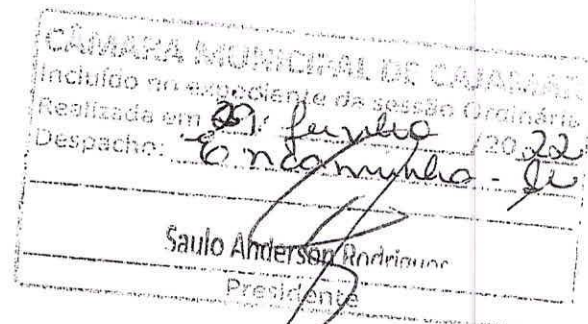 CÂMARA MUNICIPAL DE CAJAMAR
Incluído no expediente da sessão Ordinária
Realizada em / junho /2022
Despacho: Encaminha-se
Saulo Anderson Rodrigues
Presidente